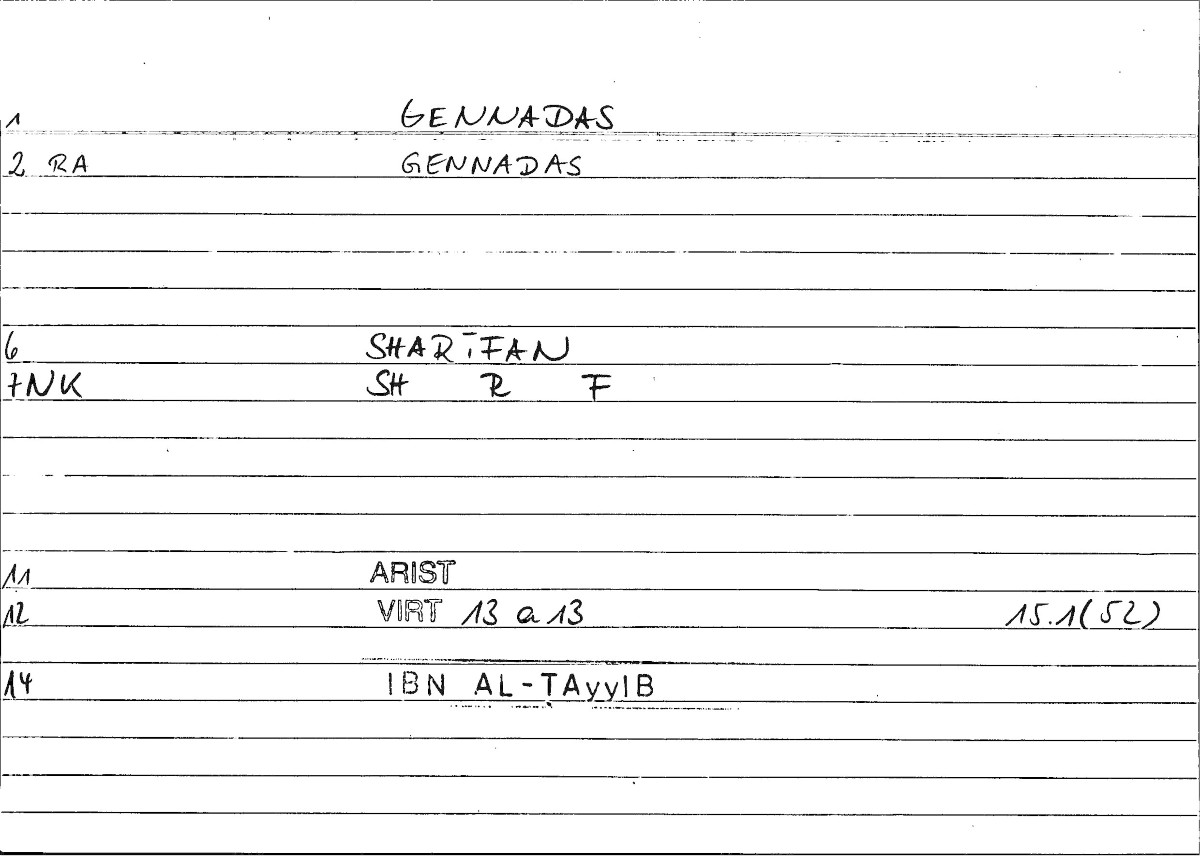 1 GENNADAS
2 RA GENNADAS
6 SHARĪFAN
7NK SH R F
11 ARIST
12 VIRT 13 a 13 15.1(52)
14 IBN AL-ṬAyyIB